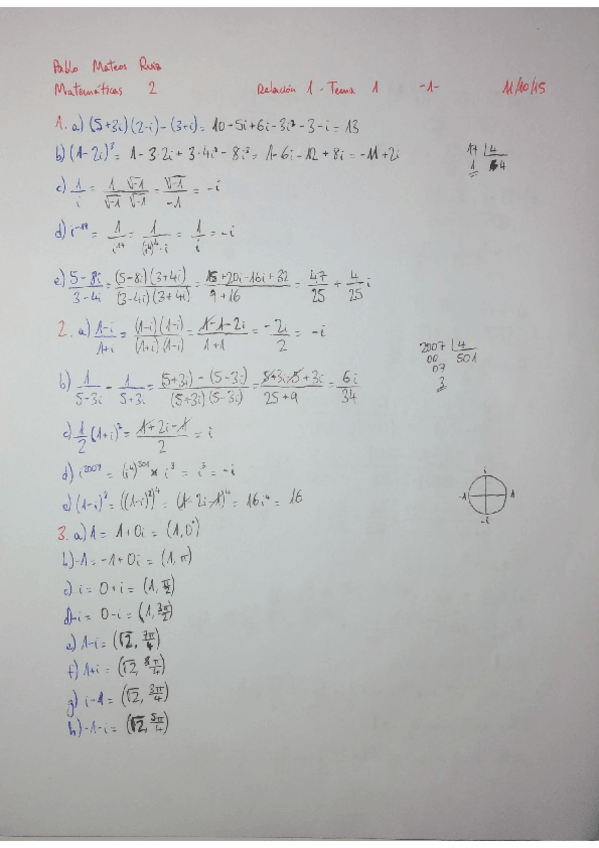 Pablo Mateos Ruiz
Matemáticas 2 Relación 1 - Tema 1 -1- 11/10/15
1. a) (5+3i)(2-i)-(3+i) = 10-5i+6i-3i²-3-i = 13
b) (1-2i)³ = 1-3·2i+3·4i²-8i³ = 1-6i-12+8i = -11+2i
17 |4
1 4
c) 1/i = 1/√-1 · √-1/√-1 = √-1/-1 = -i
d) i⁻¹⁷ = 1/i¹⁷ = 1/(i⁴)⁴·i = 1/i = -i
e) 5-8i/3-4i = (5-8i)(3+4i)/(3-4i)(3+4i) = 15+20i-16i+32/9+16 = 47/25 + 4/25 i
2. a) 1-i/1+i = (1-i)(1-i)/(1+i)(1-i) = 1-1-2i/1+1 = -2i/2 = -i
2007 |4
00 501
07
3
b) 1/5-3i - 1/5+3i = (5+3i)-(5-3i)/(5+3i)(5-3i) = 5+3i-5+3i/25+9 = 6i/34
c) 1/2 (1+i)² = 1+2i-1/2 = i
d) i²⁰⁰⁷ = (i⁴)⁵⁰¹ * i³ = i³ = -i
e) (1-i)⁸ = ((1-i)²)⁴ = (1-2i-1)⁴ = 16i⁴ = 16
i
-1 1
-i
3. a) 1 = 1+0i = (1,0°)
b) -1 = -1+0i = (1,π)
c) i = 0+i = (1, π/2)
d) -i = 0-i = (1, 3π/2)
e) 1-i = (√2, 7π/4)
f) 1+i = (√2, π/4)
g) i-1 = (√2, 3π/4)
h) -1-i = (√2, 5π/4)